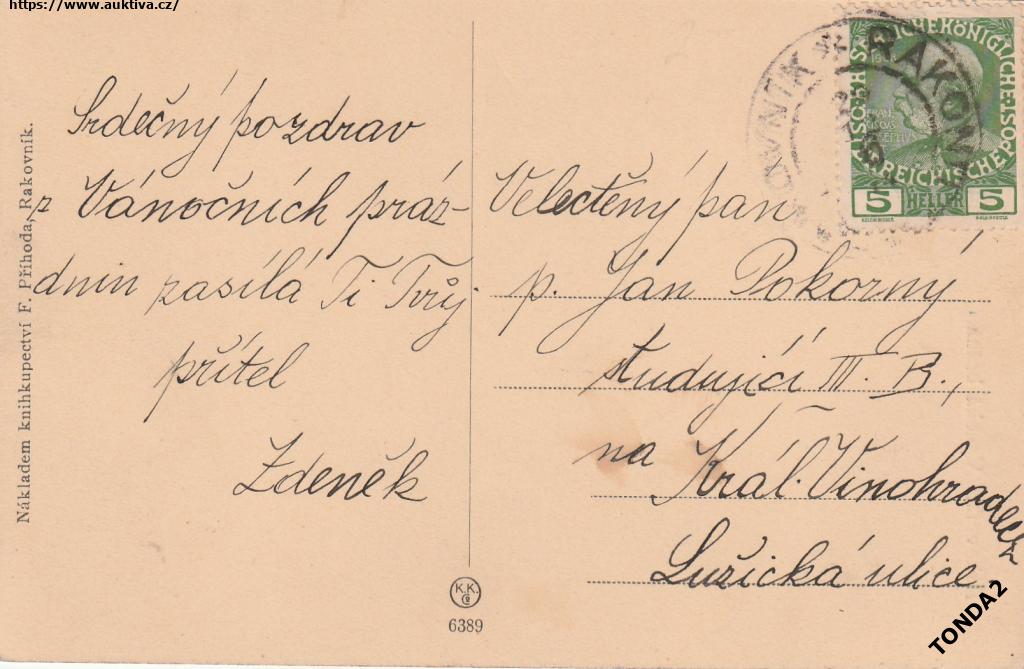 https://www.auktiva.cz/
Srdečný pozdrav
z Vánočních práz-
dnin zasílá Ti Tvůj
přítel
Zdeněk
Nákladem knihkupectví F. Příhoda, Rakovník.
K.K.
Co
6389
RAKOVNÍK * RAKOVNIK
5 HELLER 5
Velectěný pan
p. Jan Pokorný
studující III. B.,
na Král. Vinohradech
Lužická ulice
TONDA2